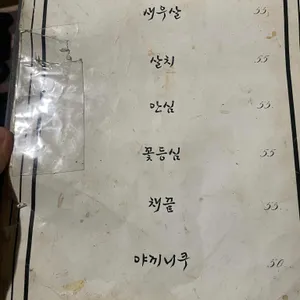 새우살 55
살치 55
안심 55
꽃등심 55
채끝 55
야끼니쿠 50